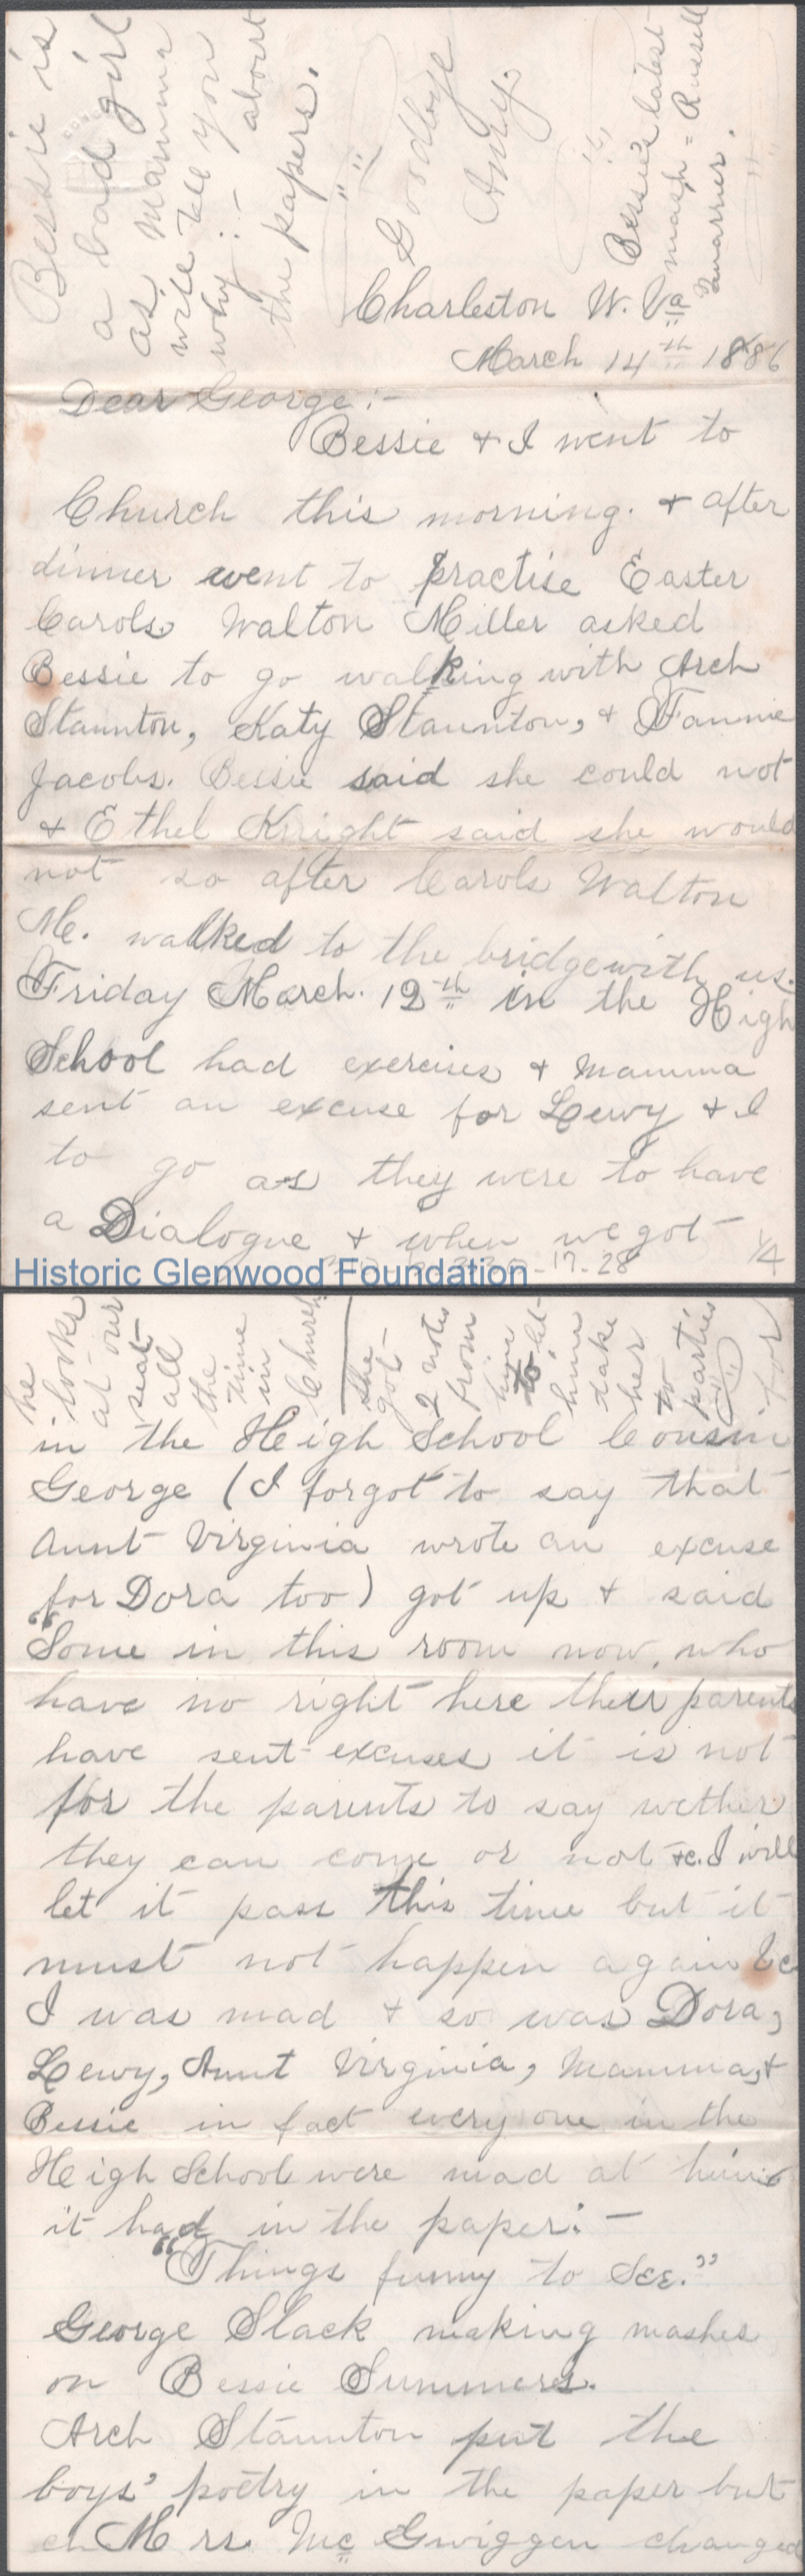 Bessie is
a bad girl
as Mamma
will tell you
why :- about
the papers.
Goodbye
Amy.
Bessie's latest
mash = Russell
Quarrier.
Charleston W. Va
March 14th 1886
Dear George:-
Bessie & I went to
Church this morning. & after
dinner went to practise Easter
Carols. Walton Miller asked
Bessie to go walking with Arch
Staunton, Katy Staunton, & Fannie
Jacobs. Bessie said she could not
& Ethel Knight said she would
not so after Carols Walton
M. walked to the bridge with us.
Friday March. 12th in the High
School had exercises & Mamma
sent an excuse for Lewy & I
to go as they were to have
a Dialogue & when we got
17-28
1/4
Historic Glenwood Foundation
he
looks
at our
seat
all
the
time
in
Church
she
got
2 notes
from
him
to let
him
take
her
to
parties
for
in the High School Cousin
George (I forgot to say that
Aunt Virginia wrote an excuse
for Dora too) got up & said
"Some in this room now, who
have no right here their parents
have sent excuses it is not
for the parents to say wether
they can come or not &c. I will
let it pass this time but it
must not happen again &c
I was mad & so was Dora,
Lewy, Aunt Virginia, Mamma, &
Bessie in fact every one in the
High School were mad at him
it had in the paper:-
"Things funny to See."
George Slack making mashes
on Bessie Summers.
Arch Staunton put the
boys' poetry in the paper but
Mrs. Mc Gwiggen changed